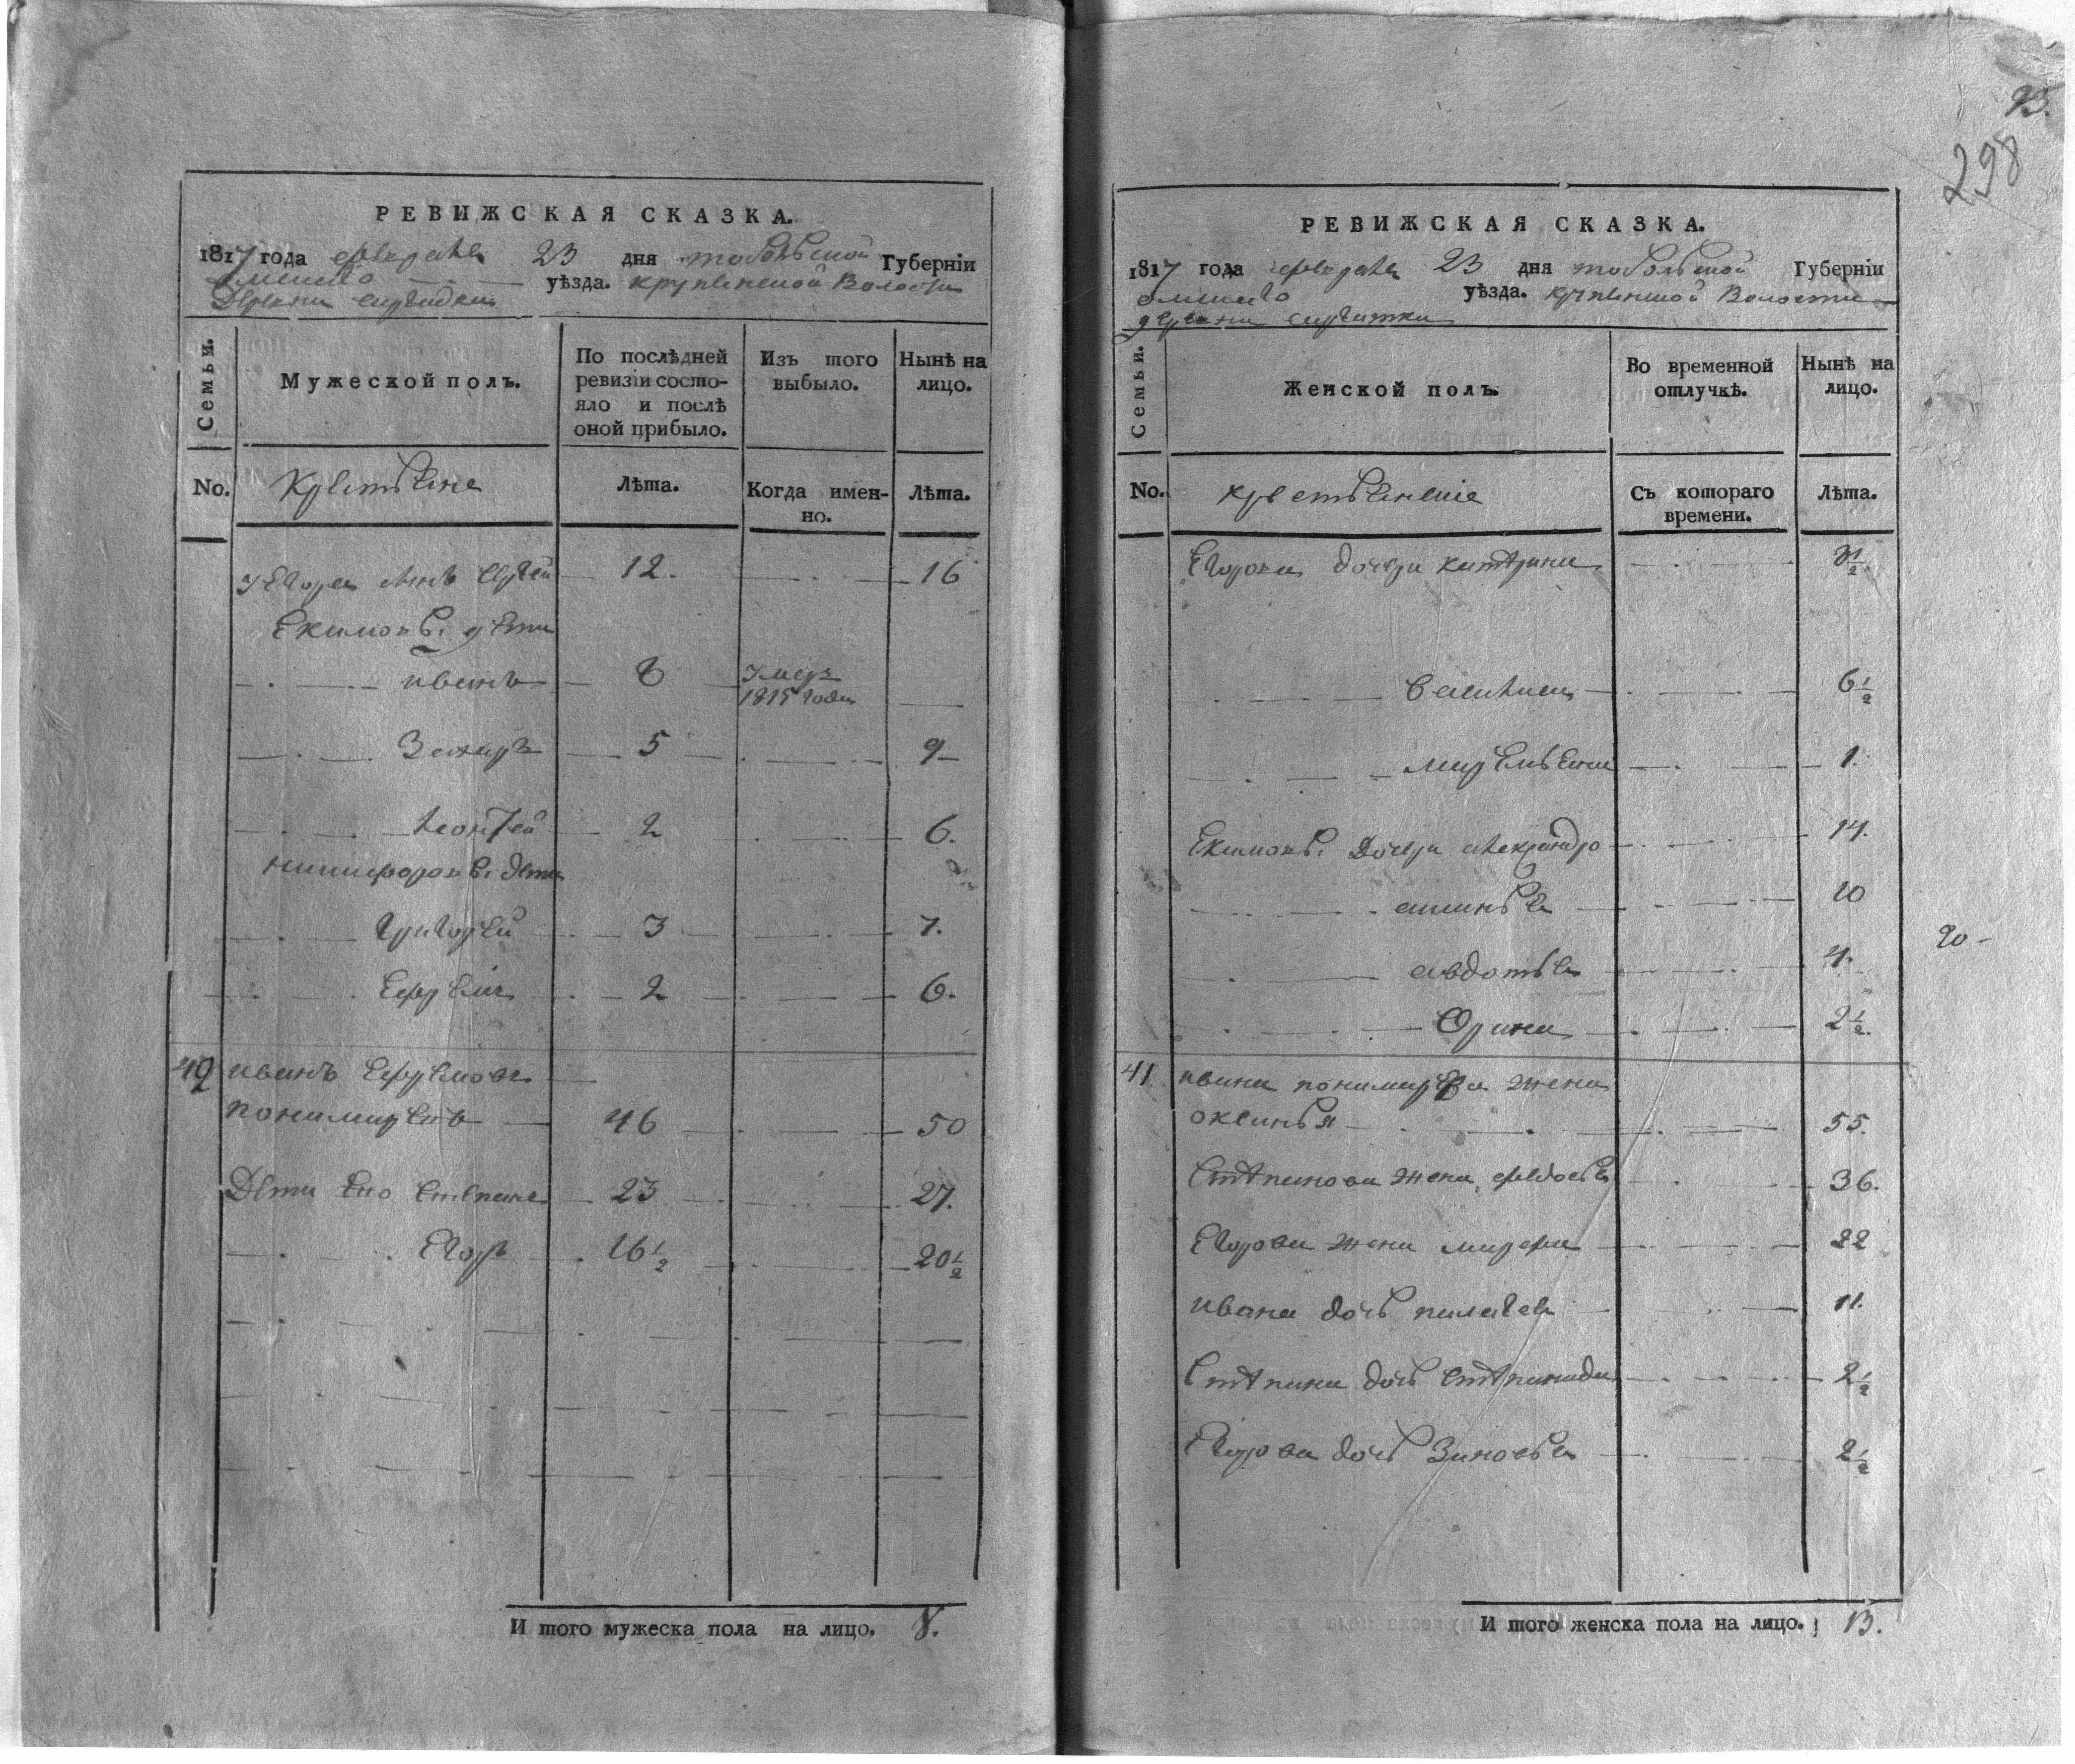 РЕВИЖСКАЯ СКАЗКА.
1817 года февраля 23 дня тобольской Губернїи
омскаго уѣзда. крупенской Волости
Деревни
Семьи.
Мужеской полъ.
По послѣдней ревизїи состояло и послѣ оной прибыло.
Изъ того выбыло.
Нынѣ на лицо.
No.
Крестьяне
Лѣта.
Когда именно.
Лѣта.
У Егора сынъ Сергей 12. 16
Екимовы дети
иванъ 8 Умеръ 1815 года
Захаръ 5 9
леонтей 2 6.
никифоровы дети
Григорей 3 7.
Ефремъ 2 6.
иванъ Ефремовъ
пономаревъ 46 50
Дети Его Степанъ 23 27.
Егоръ 16 1/2 20 1/2
И того мужеска пола на лицо. 8.
93.
298
РЕВИЖСКАЯ СКАЗКА.
1817 года февраля 23 дня тобольской Губернїи
омскаго уѣзда. крупенской Волости
деревни
Семьи.
Женской полъ.
Во временной отлучкѣ.
Нынѣ на лицо.
No.
крестьянскіе
Съ котораго времени.
Лѣта.
Егорова дочери катерина
василиса 6 1/2
1.
Екимовы Дочери александра 14.
аксинья 10
авдотья 4.
Орина 2 1/2.
41 ивана пономарева жена
оксинья 55.
Степанова жена федосья 36.
Егорова жена марфа 22
ивана дочь палагея 11.
Степана дочь Степанида 2 1/2
Егорова дочь Зиновья 2 1/2
И того женска пола на лицо. 13.